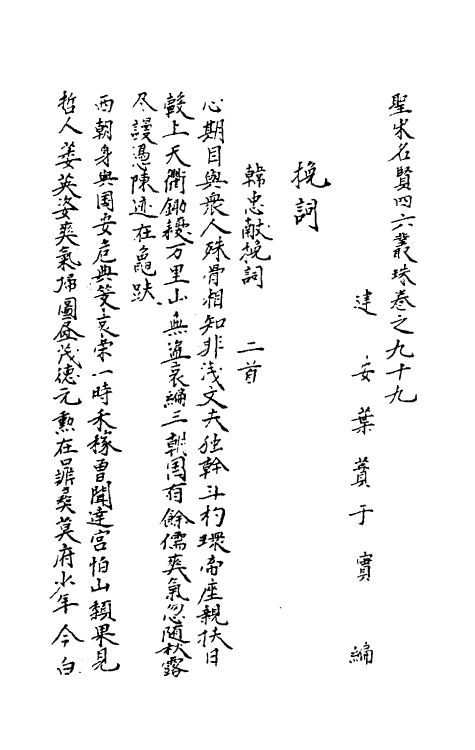 聖宋名賢四六叢珠卷之九十九
建安葉蕡子實編
挽詞
韓忠献挽詞 二首
心期目與衆人殊骨相知非浅文夫独幹斗杓環帝座親扶日
轂上天衢鋤耰万里山無盗衮綉三朝国有餘儒爽氣忽随秋露
尽謾憑陳迹在龜趺
西朝身與国安危典䇿哀荣一時禾稼曾聞達官怕山頽果見
哲人萎英姿爽氣帰圖画茂德元勲在鼎彛莫府少年今白